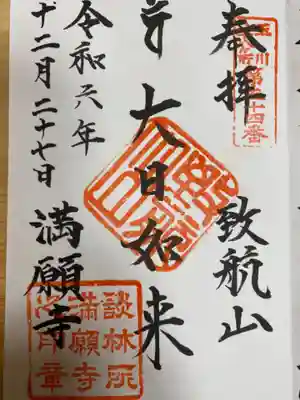 奉拝
致航山
大日如来
満願寺
令和六年
十二月二十七日
談林所
満願寺